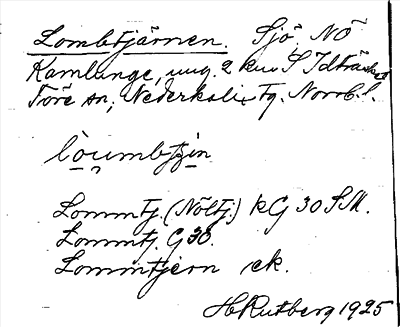 Lombtjärnen. Sjö, NÖ
Kamlunge, ung. 2 km S Idträsket
Töre sn, Nederkalix tg. Norrb. l.
lòumbtjin
Lommtj. (Nöltj.) kG 30 SM.
Lommtj. G 30.
Lommtjern ek.
H Rutberg 1925